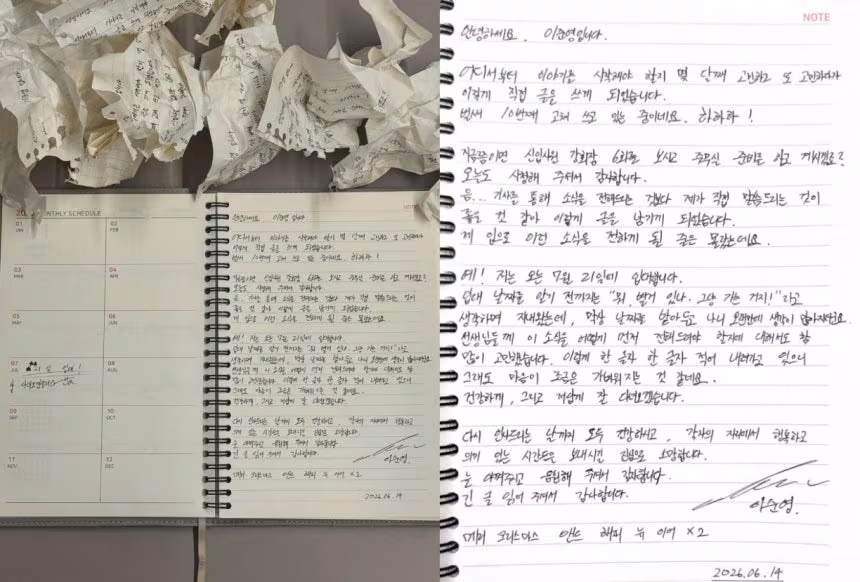 20 MONTHLY SCHEDULE
01
JAN
02
FEB
03
MAR
04
APR
05
MAY
06
JUN
07
JUL
08
AUG
09
SEP
10
OCT
11
NOV
12
DEC
NOTE
안녕하세요. 이준영입니다.
어디서부터 이야기를 시작해야 할지 몇 단째 고민하고 또 고민하다가
이렇게 직접 글을 쓰게 되었습니다.
벌써 10번째 고쳐 쓰고 있는 중이네요. 하하하!
지금쯤이면 신입사원 강회장 6회를 보시고 주무실 준비를 하고 계시겠죠?
오늘도 시청해 주셔서 감사합니다.
음... 기사를 통해 소식을 전해드리는 것보다 제가 직접 말씀드리는 것이
좋을 것 같아 이렇게 글을 남기게 되었습니다.
제 입으로 이런 소식을 전하게 될 줄은 몰랐는데요.
네! 저는 오는 7월 21일에 입대합니다.
입대 날짜를 알기 전까지는 "뭐, 별거 있나. 그냥 가는 거지!"라고
생각하며 지내왔는데, 막상 날짜를 받아들고 나니 오만가지 생각이 많아지더군요.
선생님들께 이 소식을 어떻게 먼저 전해드려야 할지에 대해서도 참
많이 고민했습니다. 이렇게 한 글자 한 글자 적어 내려가고 있으니
그래도 마음이 조금은 가벼워지는 것 같네요.
건강하게, 그리고 겁나게 잘 다녀오겠습니다.
다시 인사드리는 날까지 모두 건강하시고, 각자의 자리에서 행복하고
의미 있는 시간들을 보내시길 진심으로 소망합니다.
늘 아껴주시고 응원해 주셔서 감사합니다.
긴 글 읽어 주셔서 감사합니다.
이준영.
메리 크리스마스 앤드 해피 뉴 이어 x2
2026.06.14